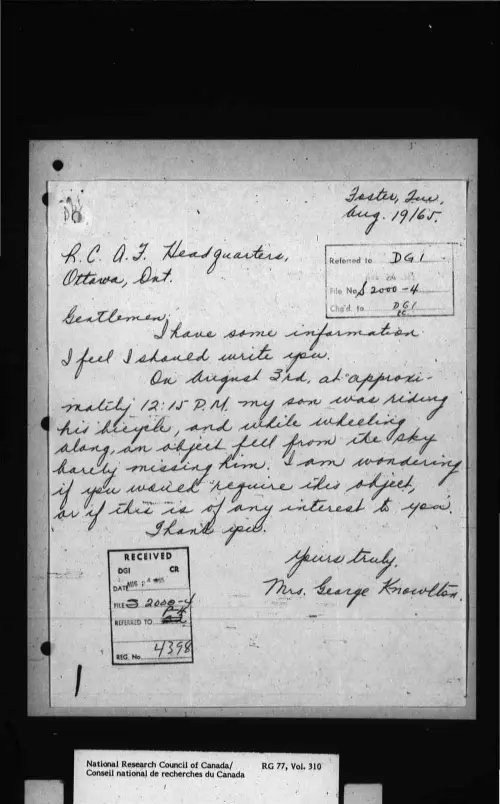 Foster, Que.
Aug. 19/65.
R.C.A.F. Headquarters,
Ottawa, Ont.
Referred to DGI
File No S 2000-4
Chg'd. to DGI
Gentlemen;
I have some information
I feel I should write you.
On August 3rd, at approxi-
mately 12:15 P.M. my son was riding
his bicycle, and while wheeling
along, an object fell from the sky
barely missing him. I am wondering
if you would require this object,
or if this is of any interest to you.
Thank you.
Yours truly,
Mrs. George Knowlton.
RECEIVED
DGI CR
DATE AUG 24 1965
FILE S 2000-4
REFERRED TO
REG. No 4398
National Research Council of Canada/ RG 77, Vol. 310
Conseil national de recherches du Canada